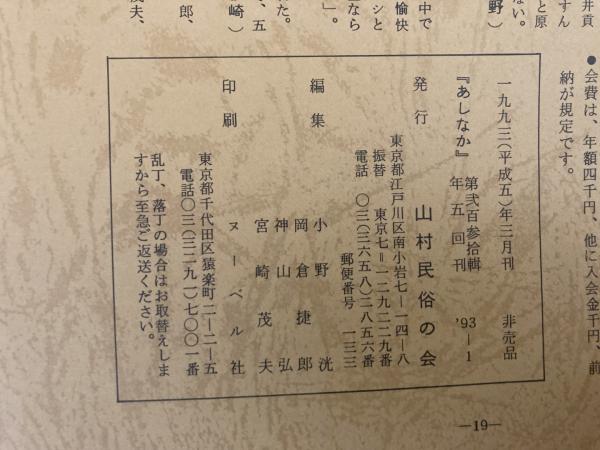 井貢
すん
と原
ない。
野）
中で
愉快
シと
なら
」。
た。
、五
崎）
郎、
茂夫、
●会費は、年額四千円、他に入会金千円、前
納が規定です。
一九九三（平成五）年三月刊　非売品
『あしなか』第弐百参拾輯　'93―1
年五回刊
発行　山村民俗の会
東京都江戸川区南小岩七―一四―八
振替　東京七＝一二九二二九番
電話　〇三（三六五八）二八五六番
郵便番号　一三三
編集　小野洸
岡倉捷郎
神山弘
宮崎茂夫
印刷　ヌーベル社
東京都千代田区猿楽町二―二―五
電話〇三（三二九一）七〇〇一番
乱丁、落丁の場合はお取替えしま
すから至急ご返送ください。
―19―